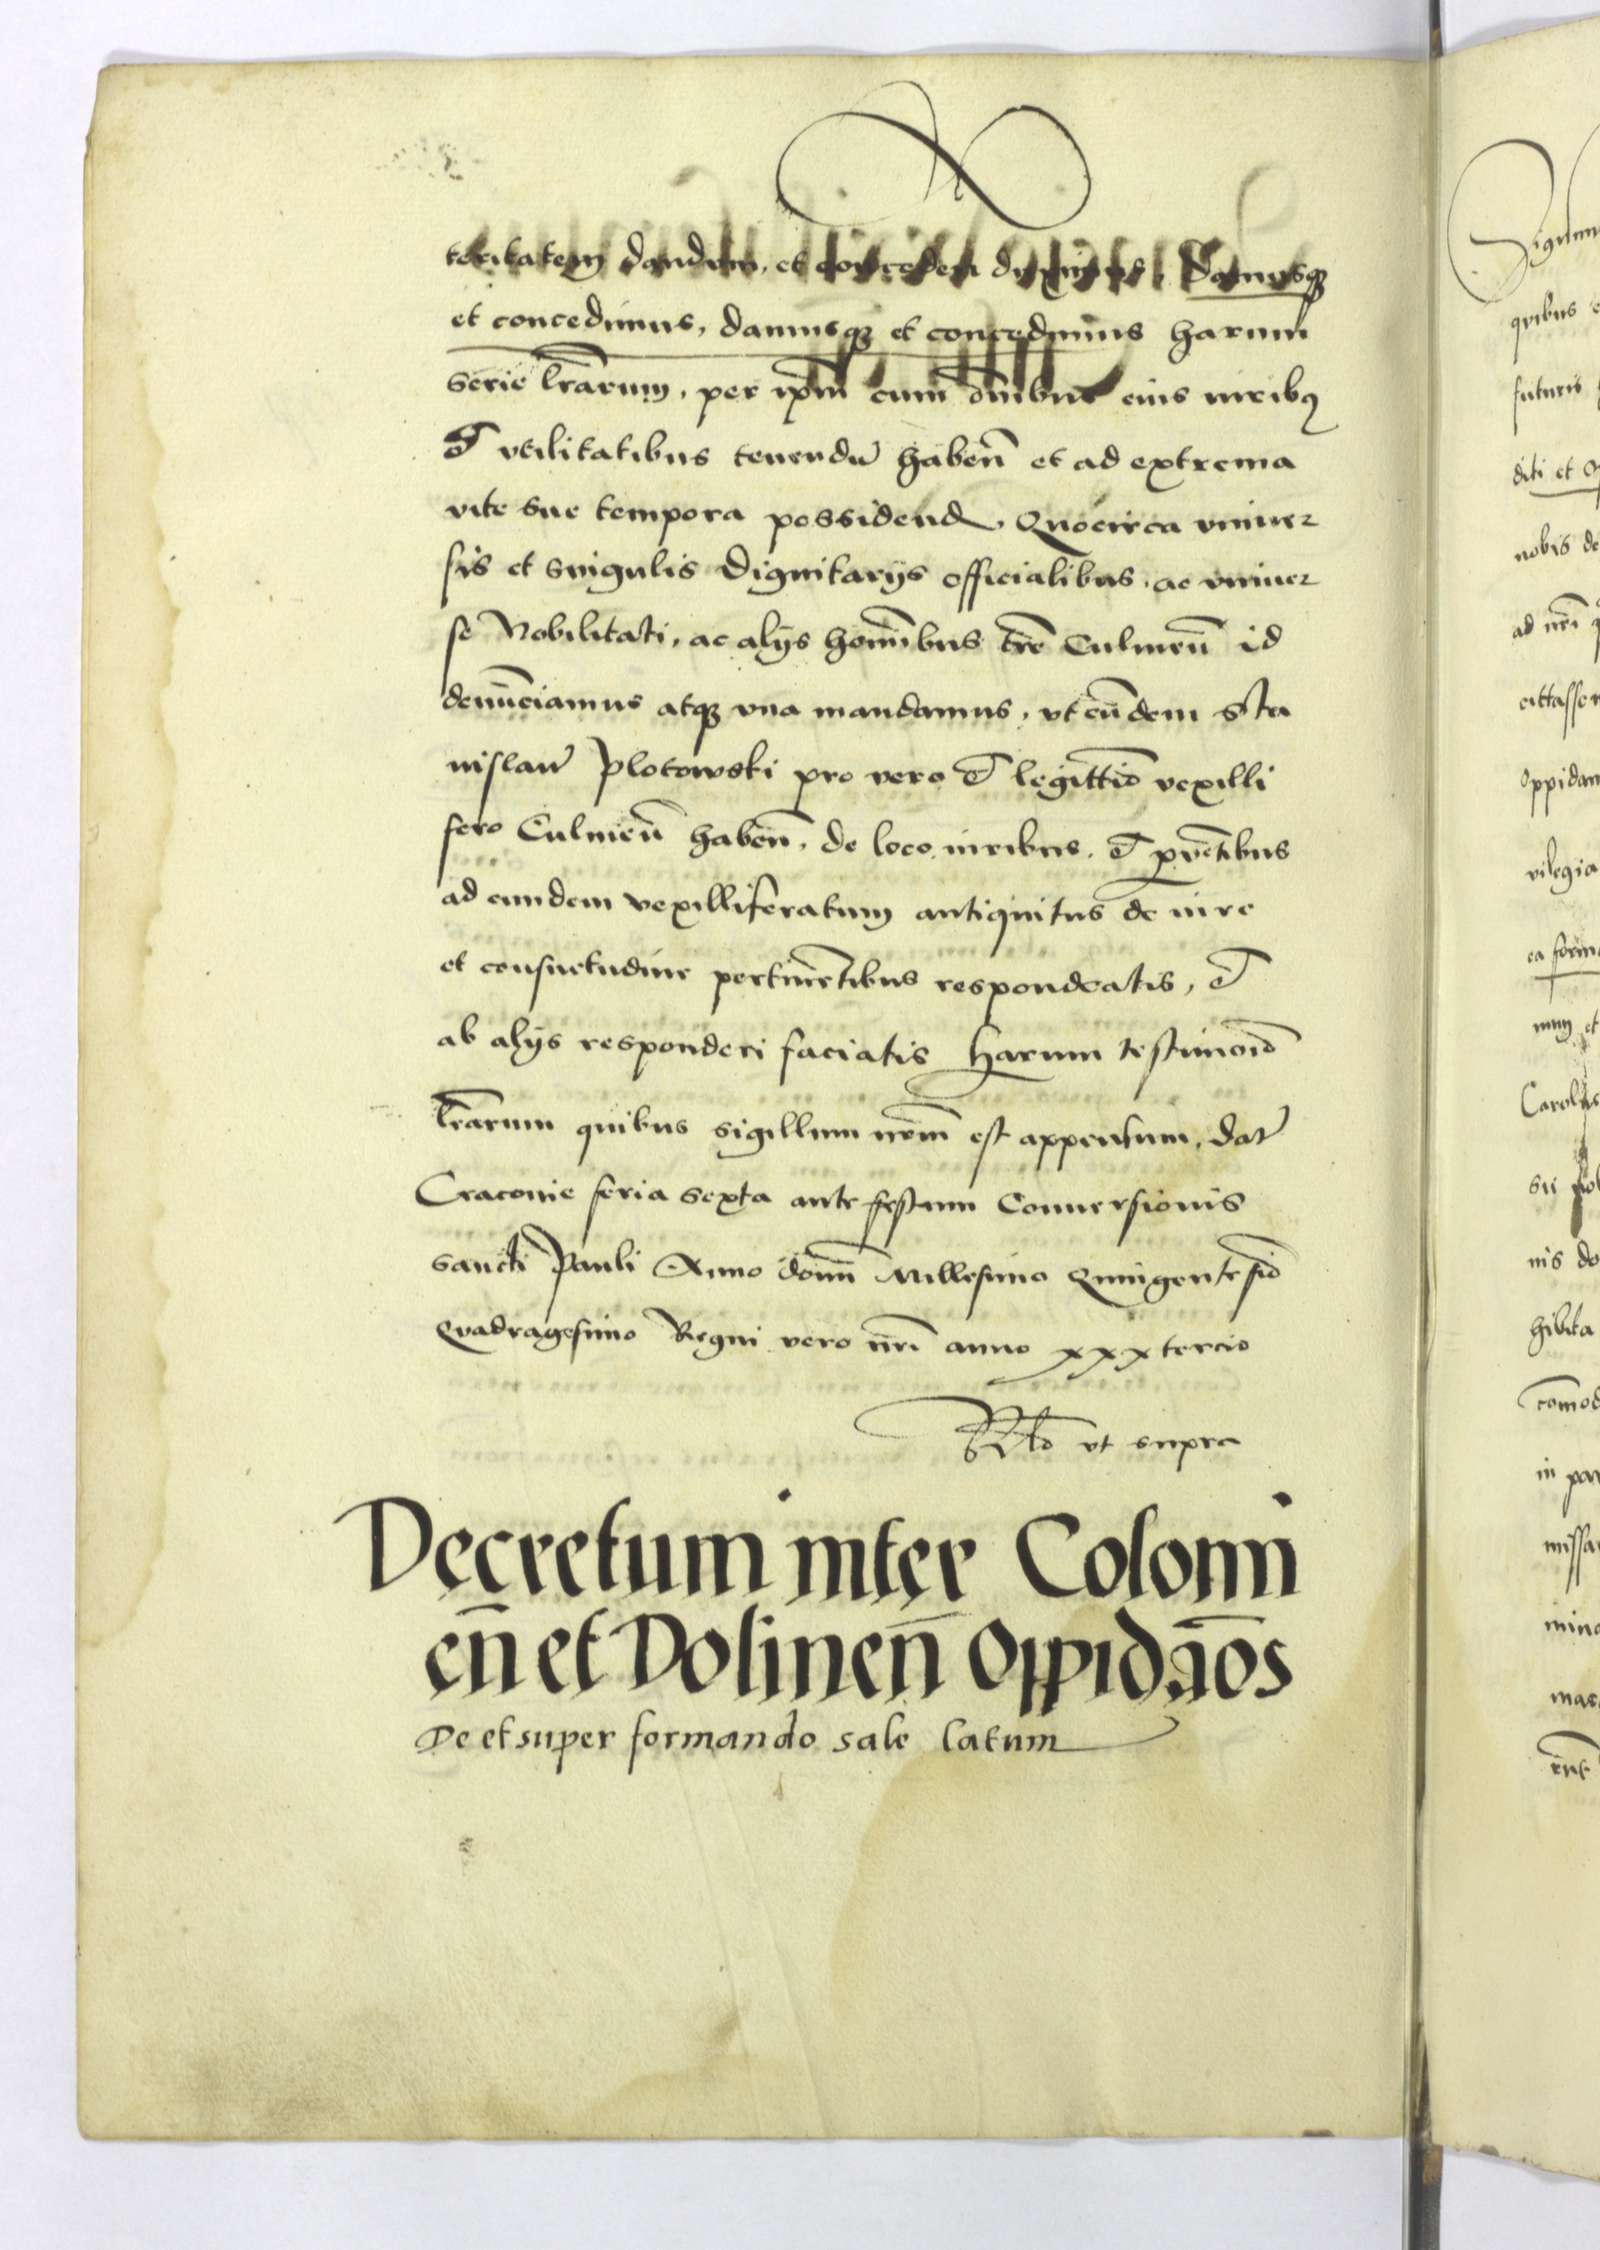 teritatem dandum, et conceden duximus, Damusq3
et concedimus, damusq3 et concedimus harum
serie lr̄arum, per ip̄m cum om̄ibus eius iuribq
et vtilitatibus tenendū haben̄ et ad extrema
vite sue tempora possidend, Quocirca vniuer
sis et singulis Dignitarijs officialibus, ac vniuer
se Nobilitati, ac alijs homībus tr̄e Culmen̄ id
denūciamus atq3 vna mandamus, vt eūdem Sta
nislaū Plotowski pro vero et legittīo vexilli
fero Culmen̄ haben̄, de loco, iuribus, et prouētibus
ad eundem vexilliferatum antiquitus de iure
et consuetudine pertinētibus respondeatis, et
ab alijs responderi faciatis Harum testimōio
lr̄arum quibus sigillum nr̄m est appensum, dat̄
Cracouie feria sexta ante festum Conuersionis
sancti Pauli Anno domī Millesimo Quingentesīo
Quadragesimo Regni vero nr̄i anno xxx tercio
R̄lo vt supra
Decretum inter Colomi
en̄ et Dolinen̄ Oppidāos
De et super formando sale latum
Sigismu
quibus
futuris
diti et
nobis de
ad nr̄i
cittasser
oppidan
vilegia
ea form
mum et
Carolus
nis do
hibita
cōmod
in par
missa
mino
mas